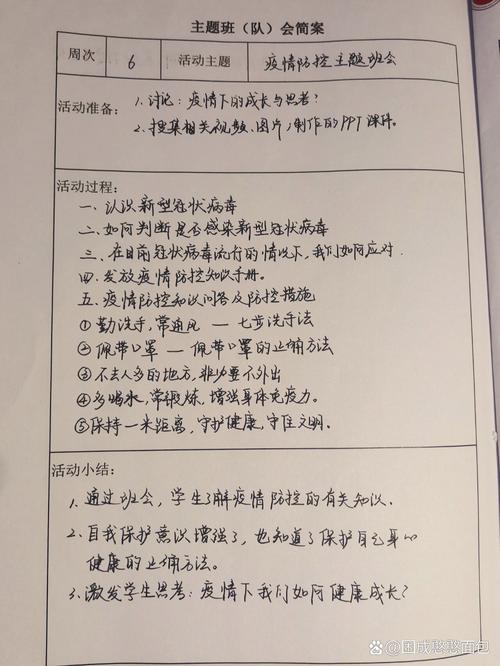 主题班（队）会简案
周次 6 活动主题 疫情防控主题班会
活动准备：
1. 讨论：疫情下的成长与思考？
2. 搜集相关视频、图片，制作的PPT课件。
活动过程：
一、认识新型冠状病毒
二、如何判断是否感染新型冠状病毒
三、在目前冠状病毒流行的情况下，我们如何应对.
四、发放疫情防控知识手册。
五、疫情防控知识问答及防控措施
①勤洗手，常通风 — 七步洗手法
②佩带口罩 — 佩带口罩的正确方法
③不去人多的地方，非必要不外出
④多喝水，常锻炼，增强身体免疫力。
⑤保持一米距离，守护健康，守住文明.
活动小结：
1. 通过班会，学生了解疫情防控的有关知识.
2. 自我保护意识增强了，也知道了保护自己身心
健康的正确方法。
3. 激发学生思考：疫情下我们如何健康成长？
@困成憨憨面包